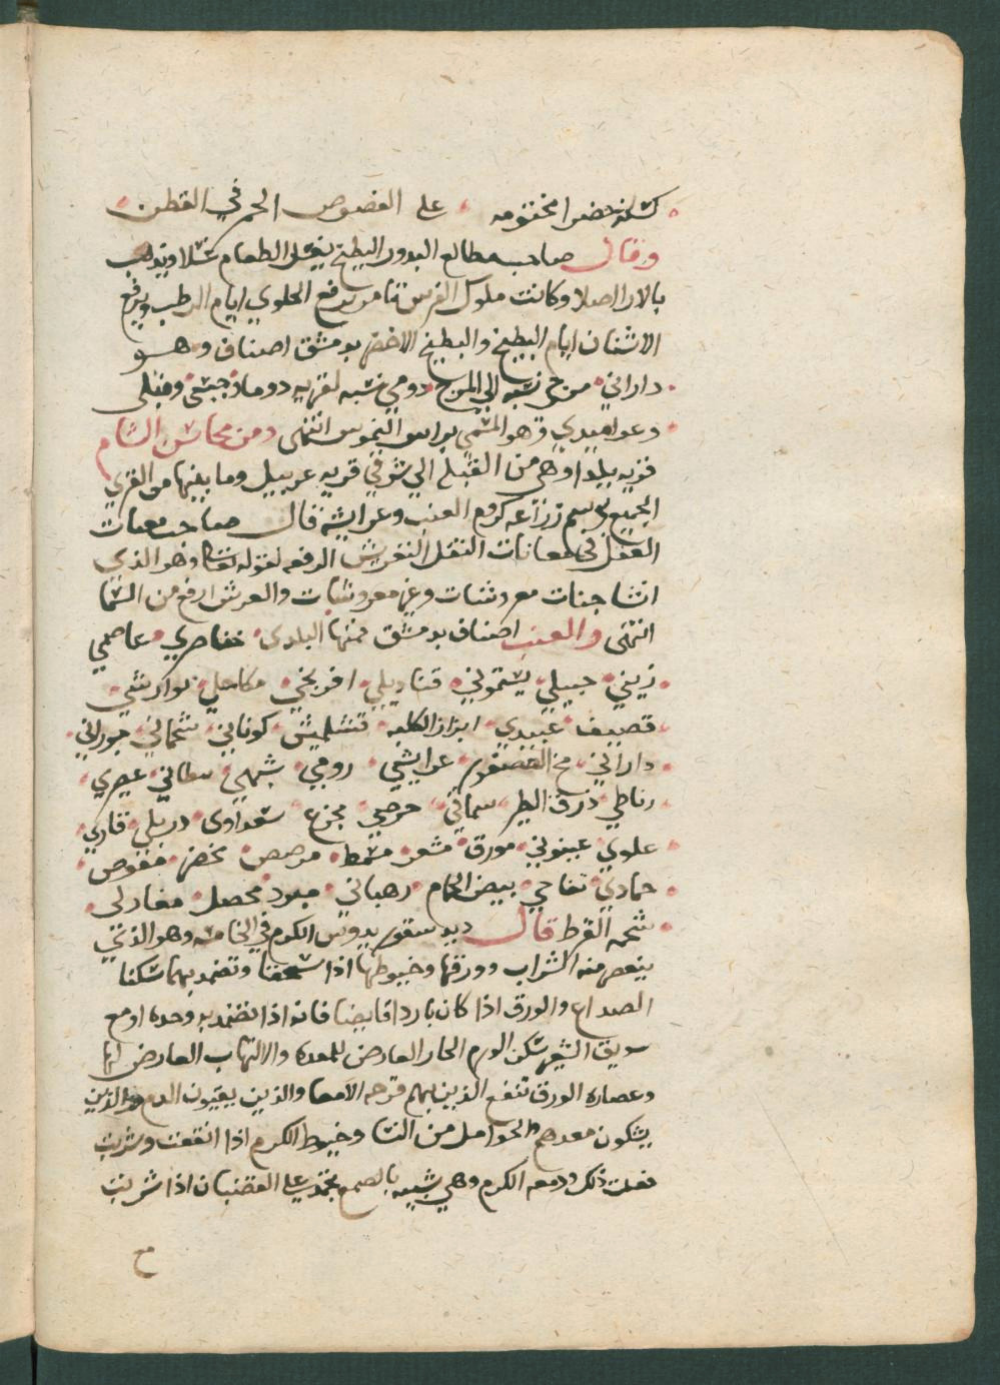 كسلة خضرا مختومه على الفصوص الحمر في القطن
وقال صاحب مطالع البدور البطيخ يغسل الطعام غسلا ويذهب
بالدا اصلا وكانت ملوك الفرس تامر برفع الحلوى ايام الرطب ويرفع
الاشنان ايام البطيخ والبطيخ الاخضر بدمشق اصناف وهو
داراني مرجي نسبه الى المرج دومي نسبه لقريه دوما حبشي وقبلي
وهو المسمي براس انتهى ومن محاسن الشام
قريه يلدا وهي من القبله الي شرقي قريه عربيل وما بينها من القرى
الجميع برسم زراعه كروم العنب وعرايشه قال صاحب
العقل في النقل التعريش الرفعه لقوله تعالى وهو الذي
انشا جنات معروشات وغير معروشات والعرش ارفع من السما
انتهى والعنب اصناف بدمشق فمنها البلدى خناصري عاصمي
زيني جبيلي قناديلي افرنجي مكاحلي
قصيف عبيدي ابزاز الكلبه قشلميش كوتاني شحماني جوراني
داراني مخ العصفور عرايشي رومي سطاني عصري
رناطي ذرق الطير سماقي حرصي مجزع شعراوى دربلي قاري
علوي عينوني مورق مشعر مشمط مرصص مخضر مقوص
حمادي تفاحي بيض الحمام رهباني مبرد محصل مغاربى
شحمه القرط قال ديوسقوريدوس الكرم في الخامسه وهو الذي
يعصر منه الشراب وورقها وخيوطها اذا سحقنا وتضمد بهما سكنا
الصداع والورق اذا كان باردا قابضا فانه اذا تضمد به وحده او مع
سويق الشعير سكن الورم الحار العارض للمعده والالتهاب العارض لها
وعصاره الورق تنفع الذين بهم قرحه الامعا والذين يقيون الدم والذين
يشكون معدهم والحوامل من النسا وخيوط الكرم اذا انقعت وشربت
فعلت ذلك ودمعه الكرم وهي شبيه بالصمغ يجمد على القضبان اذا شربت